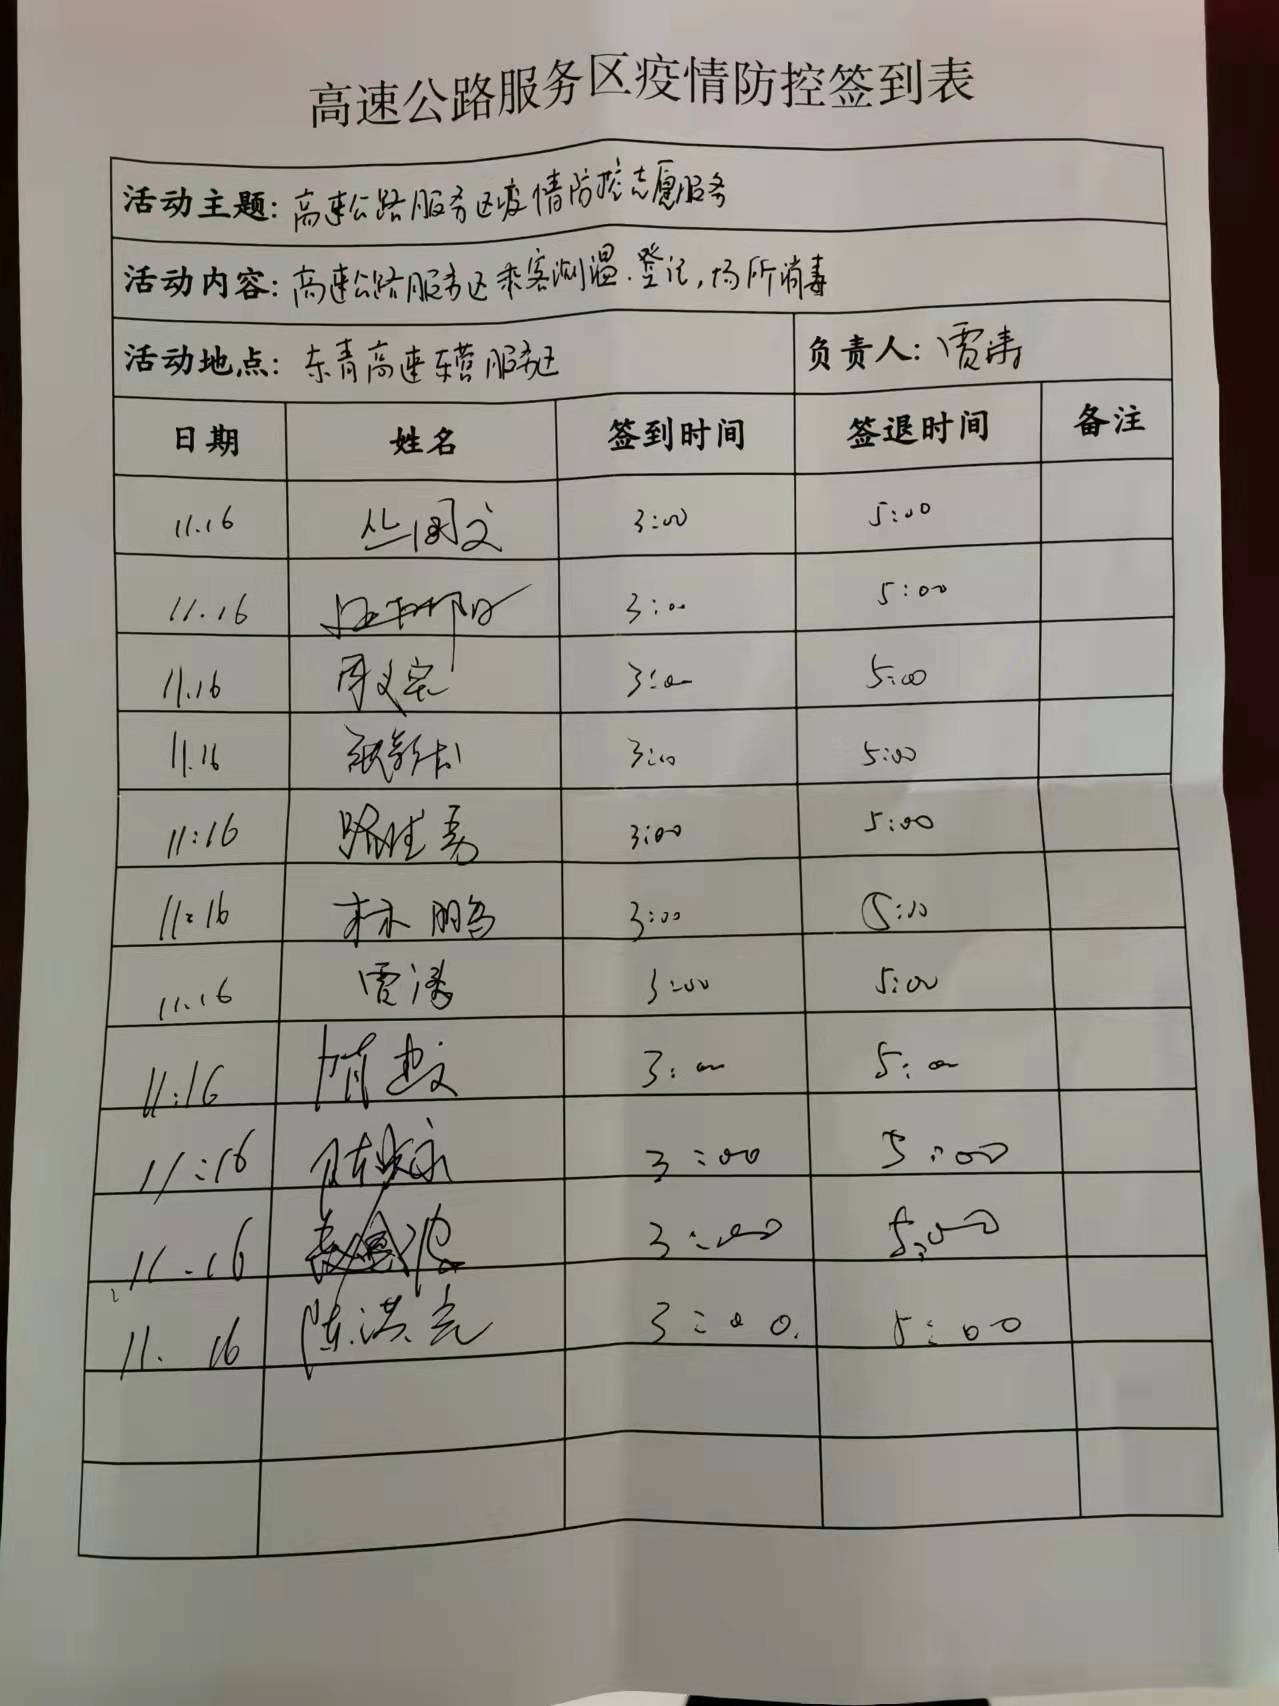 高速公路服务区疫情防控签到表
活动主题: 高速公路服务区疫情防控志愿服务
活动内容: 高速公路服务区乘客测温.登记,场所消毒
活动地点: 东青高速东营服务区 负责人: 贾涛
日期 姓名 签到时间 签退时间 备注
11.16 丛国文 3:00 5:00
11.16 3:00 5:00
11.16 周文宏 3:00 5:00
11.16 3:00 5:00
11:16 3:00 5:00
11:16 林鹏 3:00 5:00
11.16 贾涛 3:00 5:00
11:16 3:00 5:00
11:16 3:00 5:00
11.16 3:00 5:00
11.16 陈洪亮 3:00. 5:00